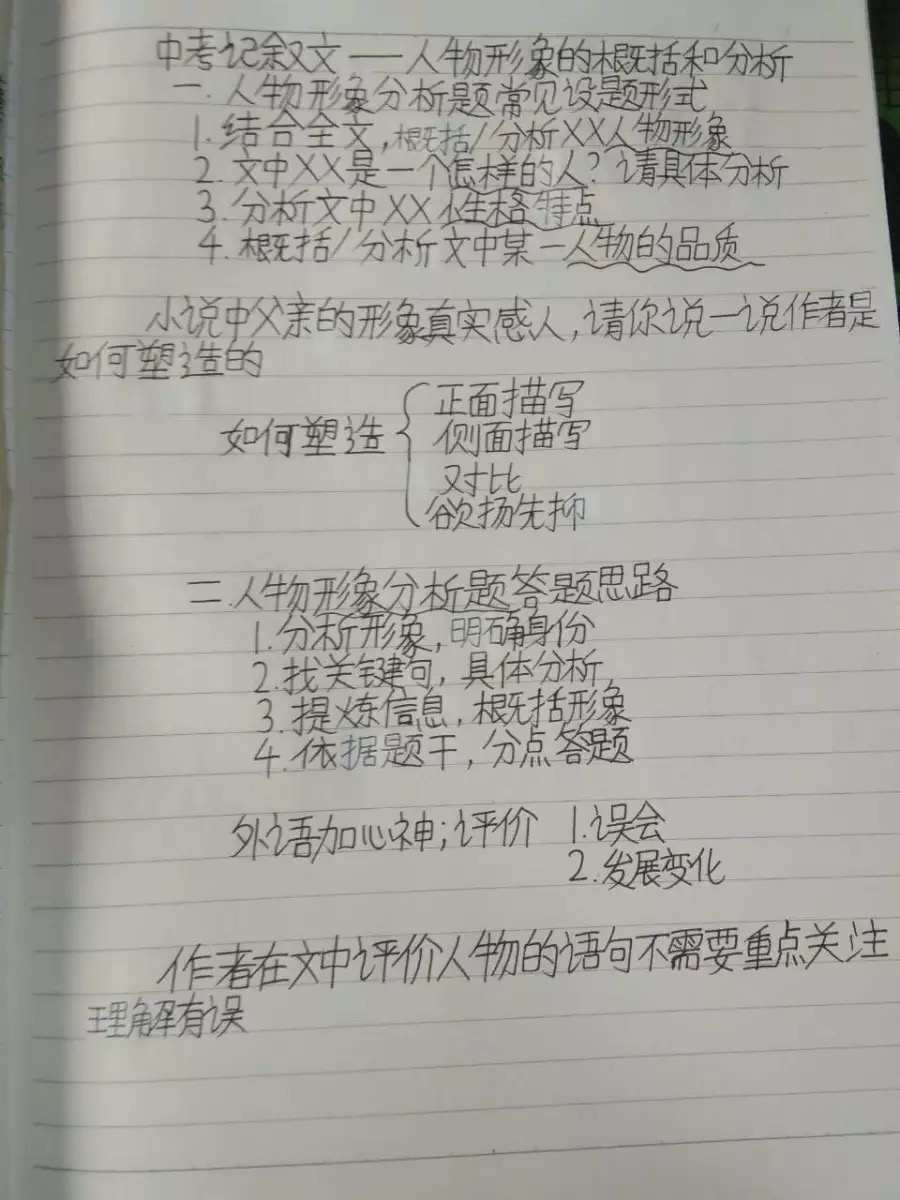 中考记叙文——人物形象的概括和分析
一.人物形象分析题常见设题形式
1.结合全文,概括/分析XX人物形象
2.文中XX是一个怎样的人?请具体分析
3.分析文中XX性格特点
4.概括/分析文中某一人物的品质
小说中父亲的形象真实感人,请你说一说作者是
如何塑造的
如何塑造
正面描写
侧面描写
对比
欲扬先抑
二.人物形象分析题答题思路
1.分析形象,明确身份
2.找关键句,具体分析,
3.提炼信息,概括形象
4.依据题干,分点答题
外语加心神;评价 1.误会
2.发展变化
作者在文中评价人物的语句不需要重点关注
理解有误